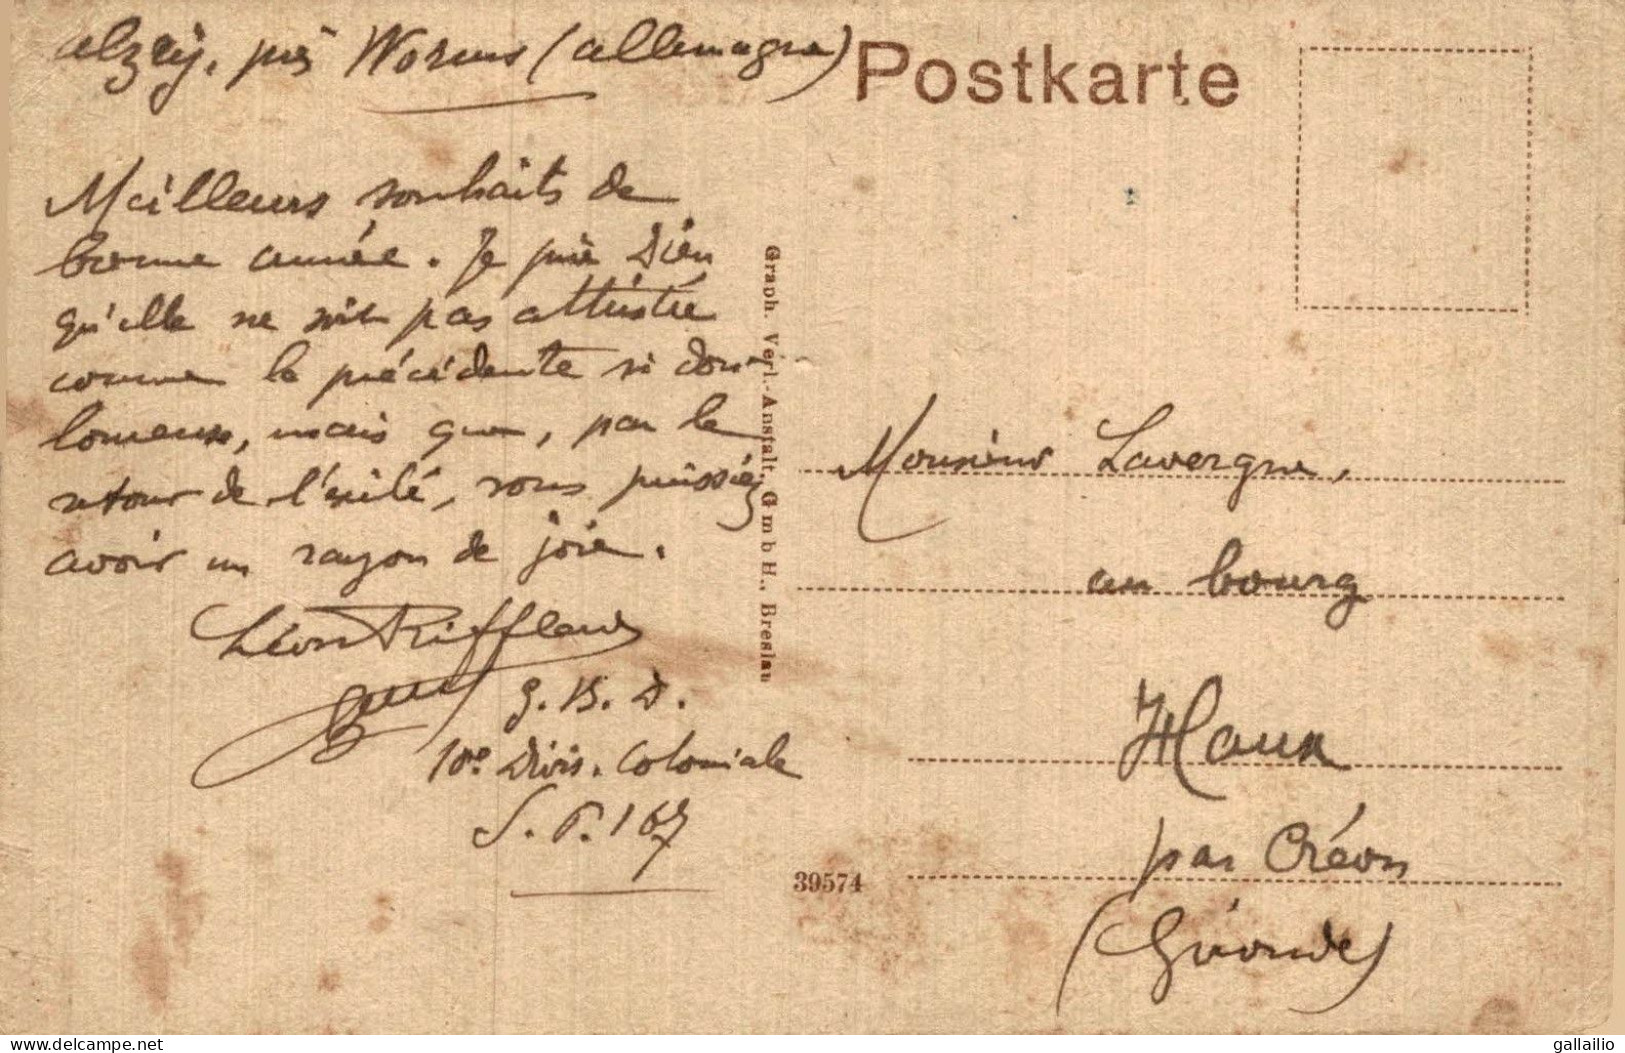 Alzey, près Worms (Allemagne)
Postkarte
Meilleurs souhaits de
bonne année. Je prie Dieu
qu'elle ne soit pas attristée
comme la précédente si dou-
loureuse, mais que, par le
retour de l'exilé, vous puissiez
avoir un rayon de joie.
Léon
G.B.D.
10e Divis. Coloniale
S.P. 167
Graph. Verl.-Anstalt. GmbH., Breslau
Monsieur Lavergne,
au bourg
Haux
par Créon
(Gironde)
39574
delcampe.net
gallailio